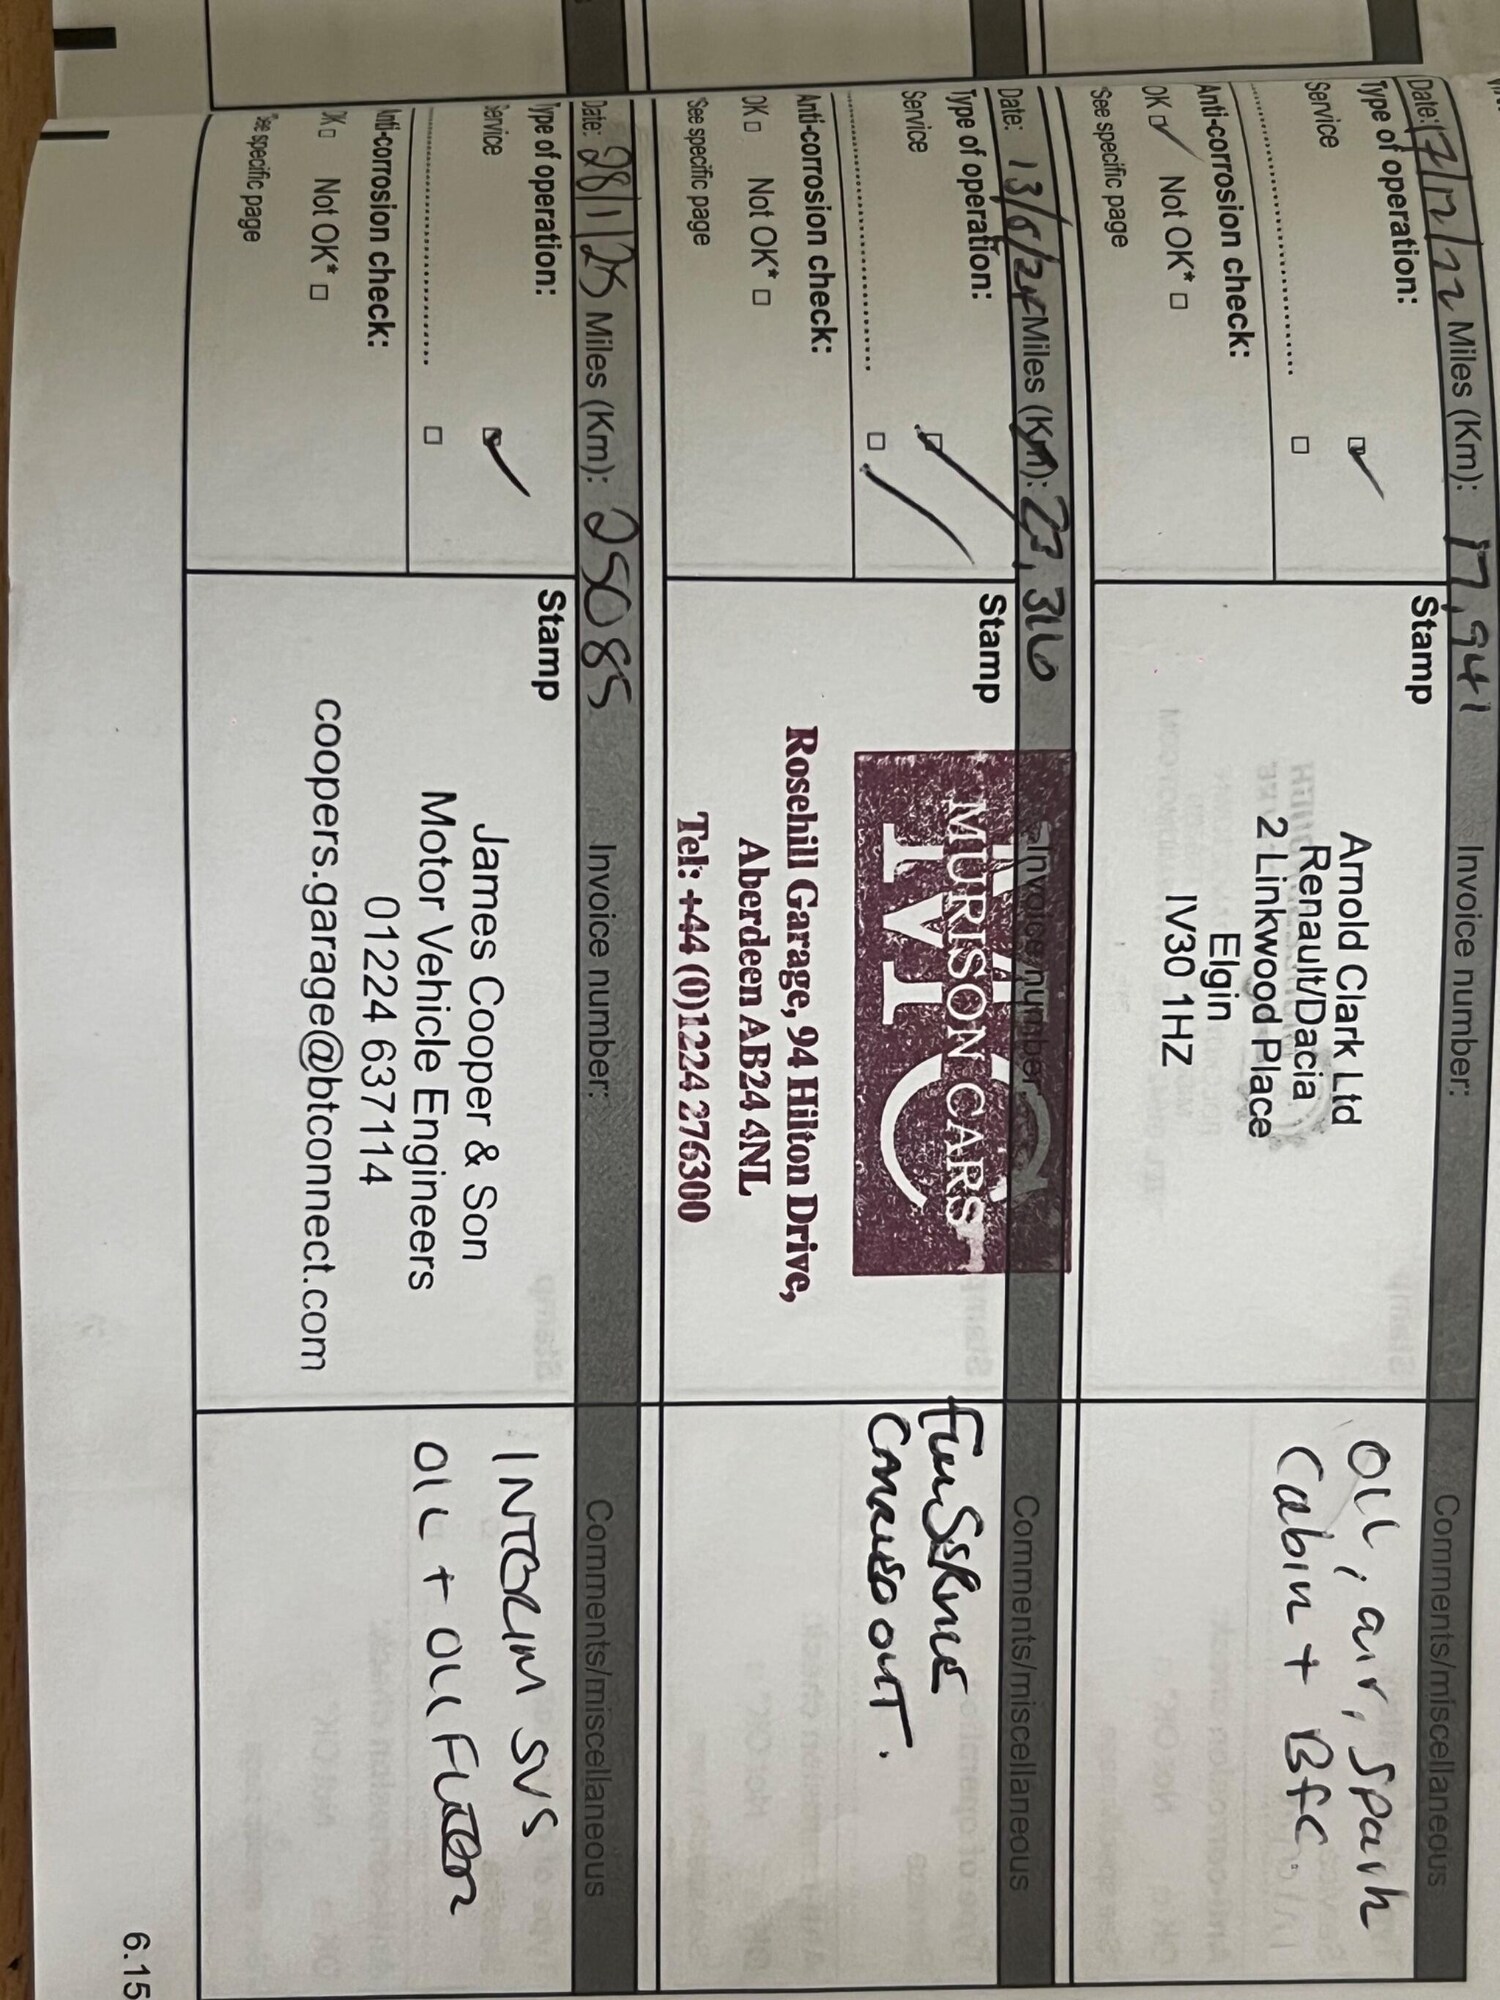 Date: 17/12/22 Miles (Km): 17,941 Invoice number: Comments/miscellaneous
Type of operation: Stamp
Service
Anti-corrosion check:
OK Not OK*
See specific page
Arnold Clark Ltd
Renault/Dacia
2 Linkwood Place
Elgin
IV30 1HZ
Oil, air, spark
Cabin + Bfc.
Date: 13/6/24 Miles (Km): 23,316 Invoice number Comments/miscellaneous
Type of operation: Stamp
Service
Anti-corrosion check:
OK Not OK*
See specific page
MURISON CARS
MC
Rosehill Garage, 94 Hilton Drive,
Aberdeen AB24 4NL
Tel: +44 (0)1224 276300
Full SERVICE
CARRIED OUT.
Date: 28/1/25 Miles (Km): 25085 Invoice number: Comments/miscellaneous
Type of operation: Stamp
Service
Anti-corrosion check:
OK Not OK*
See specific page
James Cooper & Son
Motor Vehicle Engineers
01224 637114
coopers.garage@btconnect.com
INTERIM SVS
OIL + OIL FILTER
6.15